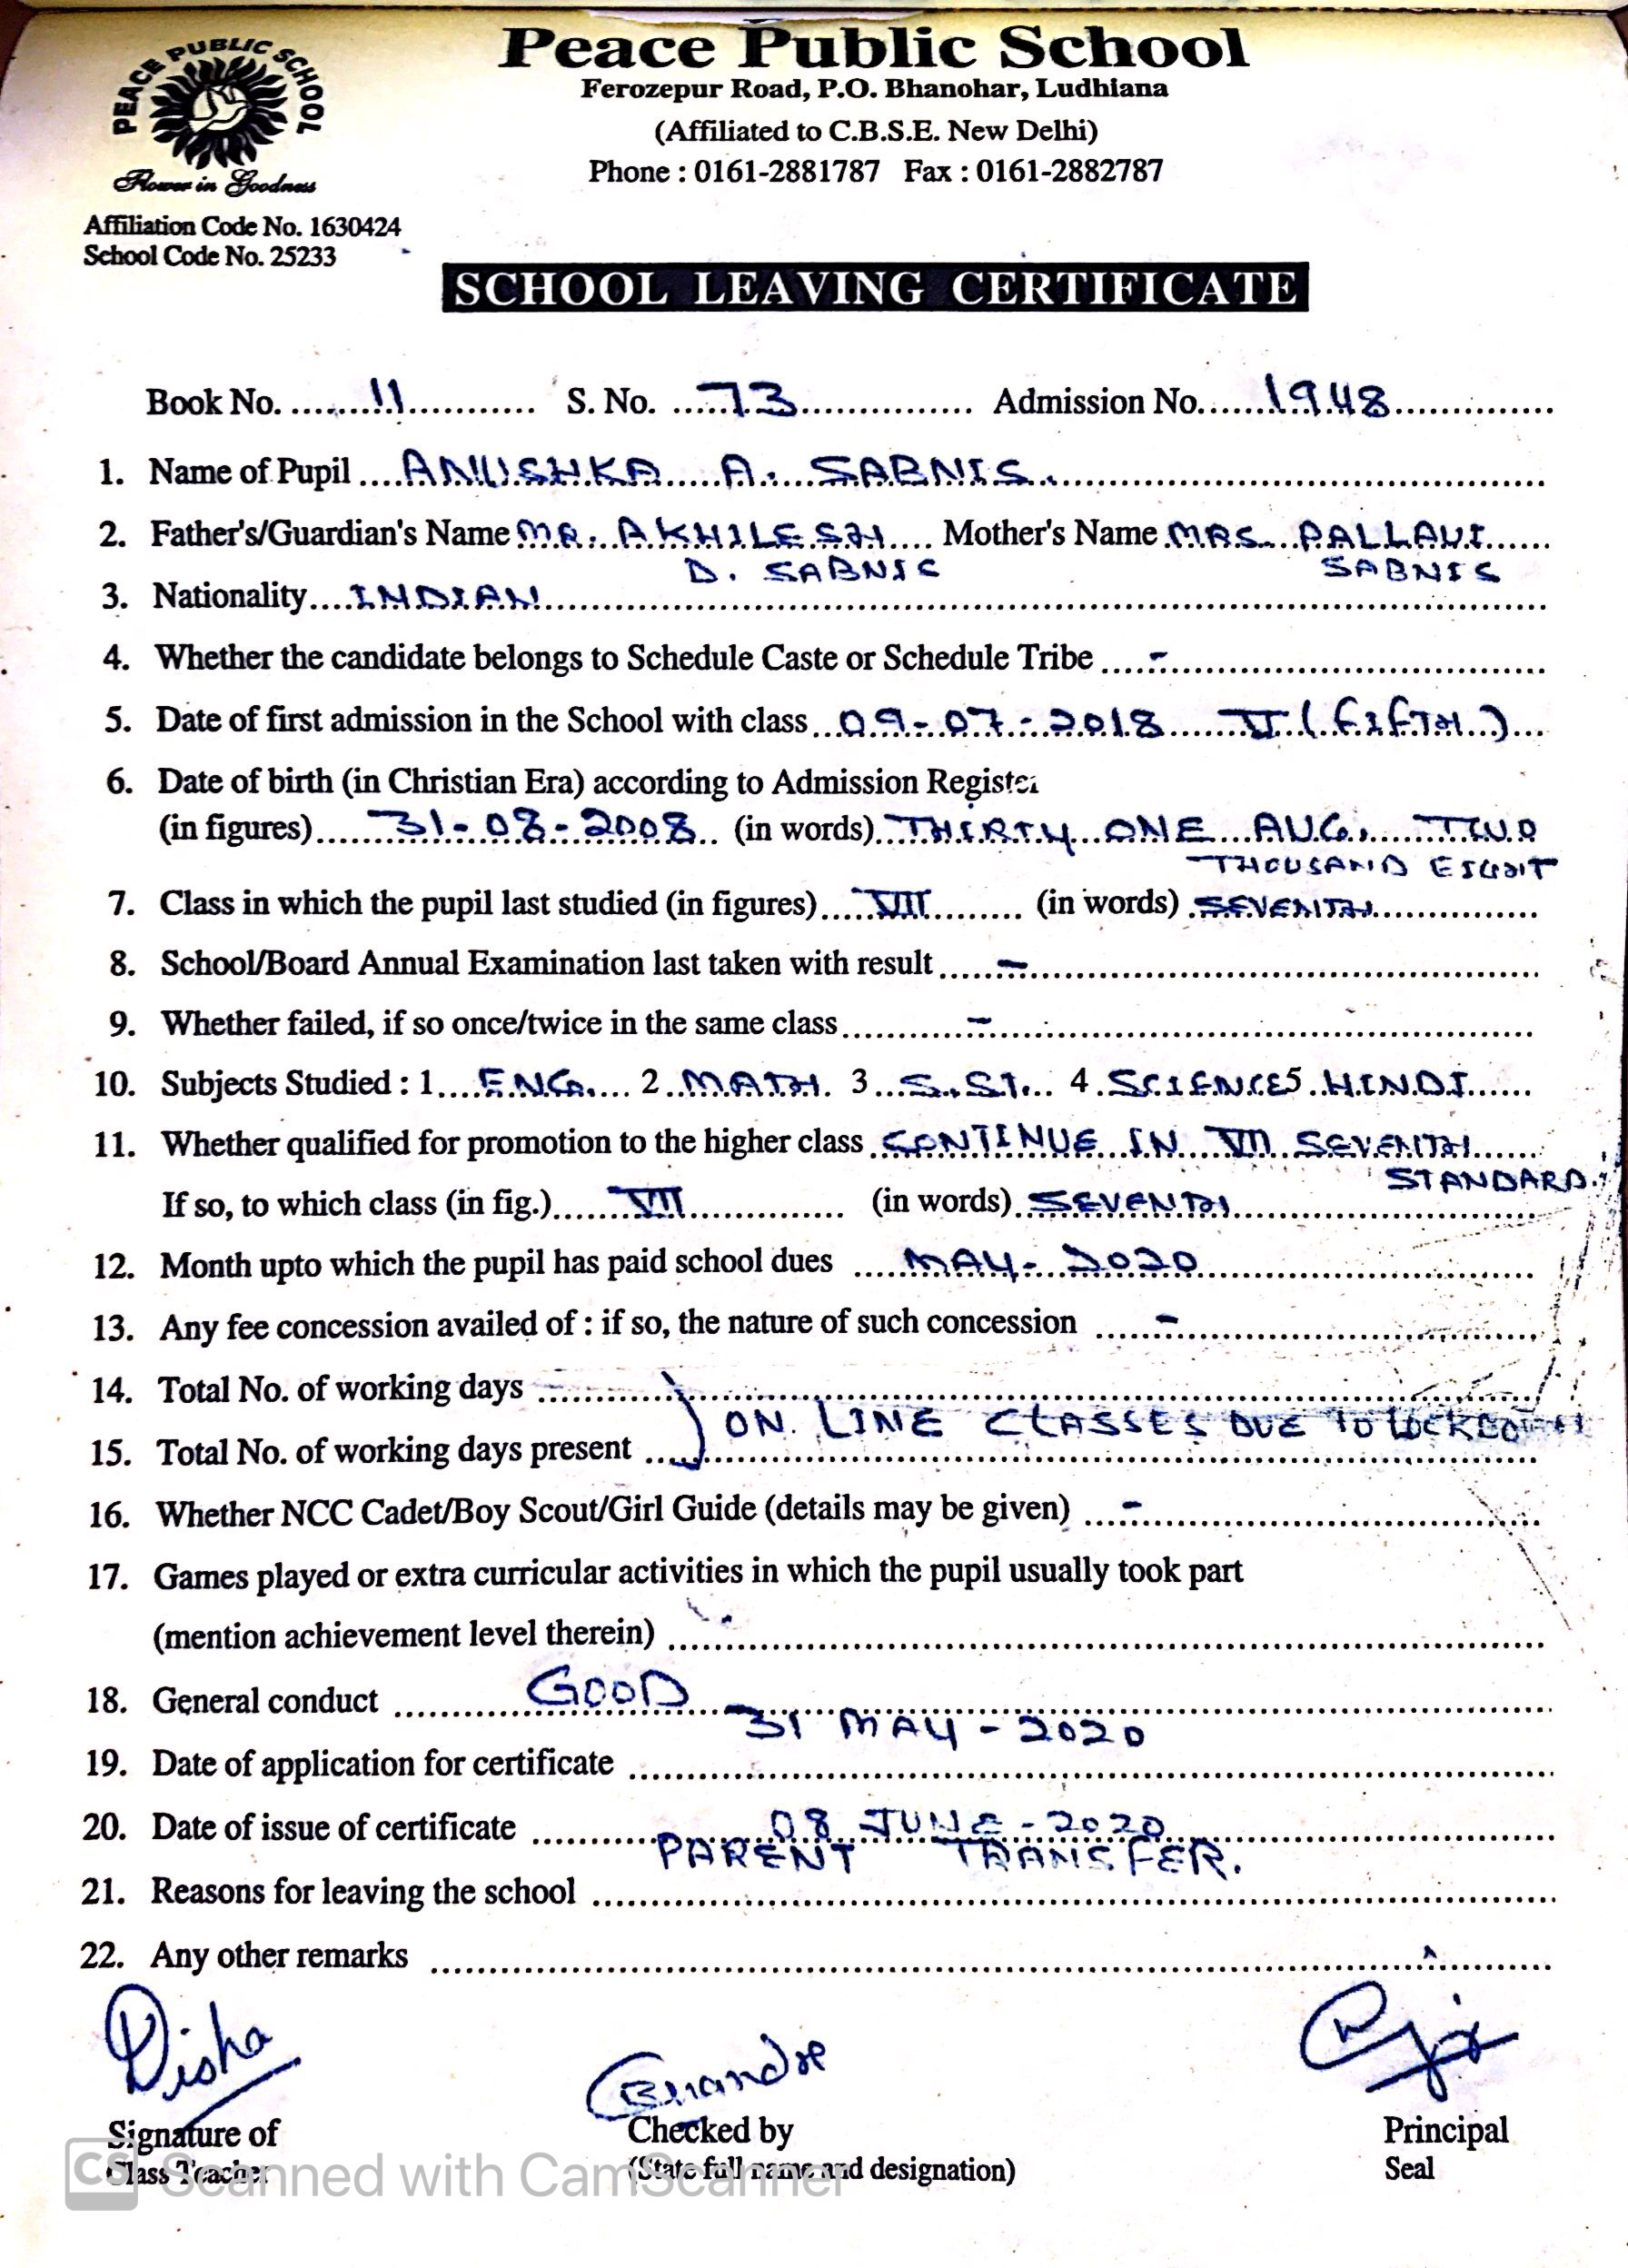 PEACE PUBLIC SCHOOL
Flower in Goodness
Affiliation Code No. 1630424
School Code No. 25233
Peace Public School
Ferozepur Road, P.O. Bhanohar, Ludhiana
(Affiliated to C.B.S.E. New Delhi)
Phone : 0161-2881787 Fax : 0161-2882787
SCHOOL LEAVING CERTIFICATE
Book No. 11 S. No. 73 Admission No. 1948
1. Name of Pupil ANUSHKA A. SABNIS.
2. Father's/Guardian's Name MR. AKHILESH Mother's Name MRS. PALLAVI
D. SABNIS SABNIS
3. Nationality INDIAN
4. Whether the candidate belongs to Schedule Caste or Schedule Tribe -
5. Date of first admission in the School with class 09-07-2018 V (FIFTH)
6. Date of birth (in Christian Era) according to Admission Register
(in figures) 31-08-2008 (in words) THIRTY ONE AUG. TWO
THOUSAND EIGHT
7. Class in which the pupil last studied (in figures) VII (in words) SEVENTH
8. School/Board Annual Examination last taken with result -
9. Whether failed, if so once/twice in the same class -
10. Subjects Studied : 1 ENG. 2 MATH. 3 S.ST. 4 SCIENCE 5 HINDI
11. Whether qualified for promotion to the higher class CONTINUE IN VII SEVENTH
STANDARD.
If so, to which class (in fig.) VII (in words) SEVENTH
12. Month upto which the pupil has paid school dues MAY-2020
13. Any fee concession availed of : if so, the nature of such concession -
14. Total No. of working days
ON LINE CLASSES DUE TO LOCKDOWN
15. Total No. of working days present
16. Whether NCC Cadet/Boy Scout/Girl Guide (details may be given) -
17. Games played or extra curricular activities in which the pupil usually took part
(mention achievement level therein)
18. General conduct GOOD
31 MAY - 2020
19. Date of application for certificate
20. Date of issue of certificate 08 JUNE - 2020
PARENT TRANSFER.
21. Reasons for leaving the school
22. Any other remarks
Disha
Signature of
Class Teacher
Checked by
(State full name and designation)
Principal
Seal
CS Scanned with CamScanner